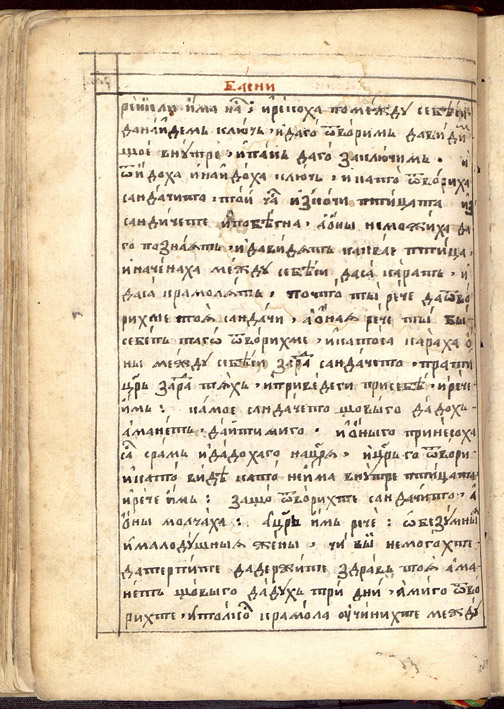 Басни
решели има на҆ : и рекоха помежду себѣ си
да найдемь ключь , и да го ѿворимь да види
щое внутре , и пакь да го заключимь . и
ѿидоха и найдоха ключь , и като ѿвориха
сандачито , той ча изскочи птицата из
сандачете и побегна , а оны неможиха да
го познаять , и да видять каква птица ,
и наченаха между себѣси да са карать , и
да са крамолять , почто ты рече да ѿво
рихме тоя сандачи , а оная рече ты бы
себепь та го ѿворихме , и катоса караха о
ны между себѣси зара сандачето , прати
царь зара тяхь , и приведеги при себѣ , и рече
имь : камое сандачето щовыго дадохь
аманеть , дайтимиго . и оны го принесоха
са срамь и дадохаго на царя , и царь го ѿвори
и като видѣ като нейма внутре птицата
и рече имь : защо ѿворихте сандачито , а
оны молчаха : а царь имь рече : ѡ безумныя
и малодушныя жены , чи вы немогохте
да терпите да держите здравь тоя ама
неть щовыго дадухь три дни , ами го ѿво
рихте , и толко крамола оучинихте между